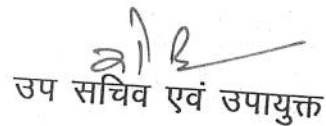 उप सचिव एवं उपायुक्त